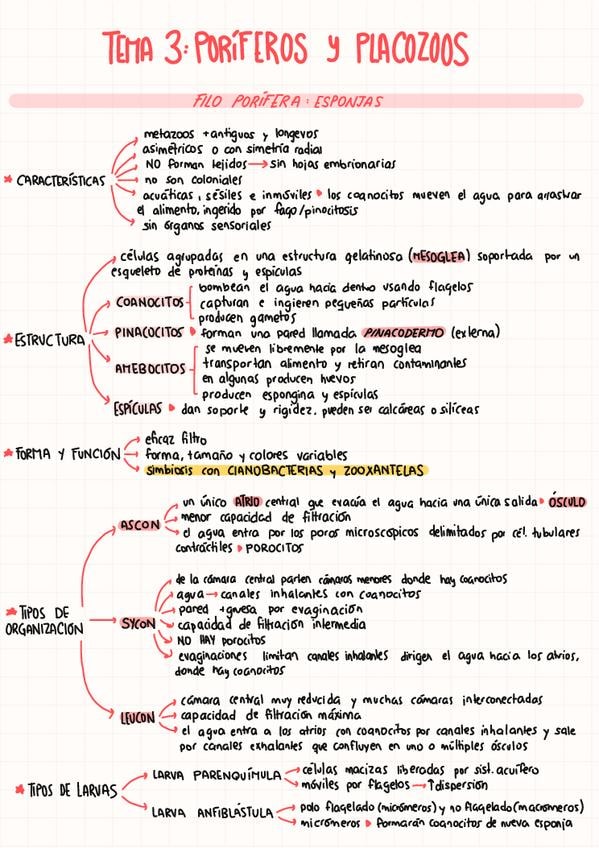 TEMA 3: PORÍFEROS y PLACOZOOS
FILO PORÍFERA: ESPONJAS
metazoos + antiguos y longevos
asimétricos o con simetría radial
NO forman tejidos → sin hojas embrionarias
* CARACTERÍSTICAS
no son coloniales
acuáticas, sésiles e inmóviles • los coanocitos mueven el agua para arrastrar
el alimento, ingerido por fago/pinocitosis
sin órganos sensoriales
células agrupadas en una estructura gelatinosa (MESOGLEA) soportada por un
esqueleto de proteínas y espículas
bombean el agua hacia dentro usando flagelos
COANOCITOS
capturan e ingieren pequeñas partículas
producen gametos
* ESTRUCTURA
PINACOCITOS • forman una pared llamada PINACODERMO (externa)
se mueven libremente por la mesoglea
AMEBOCITOS
transportan alimento y retiran contaminantes
en algunas producen huevos
producen espongina y espículas
ESPÍCULAS • dan soporte y rigidez. pueden ser calcáreas o silíceas
eficaz filtro
* FORMA Y FUNCIÓN
forma, tamaño y colores variables
simbiosis con CIANOBACTERIAS y ZOOXANTELAS
un único ATRIO central que evacúa el agua hacia una única salida • ÓSCULO
ASCON
menor capacidad de filtración
el agua entra por los poros microscópicos delimitados por cél. tubulares
contráctiles • POROCITOS
de la cámara central parten cámaras menores donde hay coanocitos
agua → canales inhalantes con coanocitos
* TIPOS DE
ORGANIZACIÓN
pared + gruesa por evaginación
SYCON
capacidad de filtración intermedia
NO HAY porocitos
evaginaciones limitan canales inhalantes dirigen el agua hacia los atrios,
donde hay coanocitos
cámara central muy reducida y muchas cámaras interconectadas
LEUCON
capacidad de filtración máxima
el agua entra a los atrios con coanocitos por canales inhalantes y sale
por canales exhalantes que confluyen en uno o múltiples ósculos
LARVA PARENQUÍMULA
células macizas liberadas por sist. acuífero
móviles por flagelos → ↑ dispersión
* TIPOS DE LARVAS
LARVA ANFIBLÁSTULA
polo flagelado (micrómeros) y no flagelado (macrómeros)
micrómeros • formarán coanocitos de nueva esponja